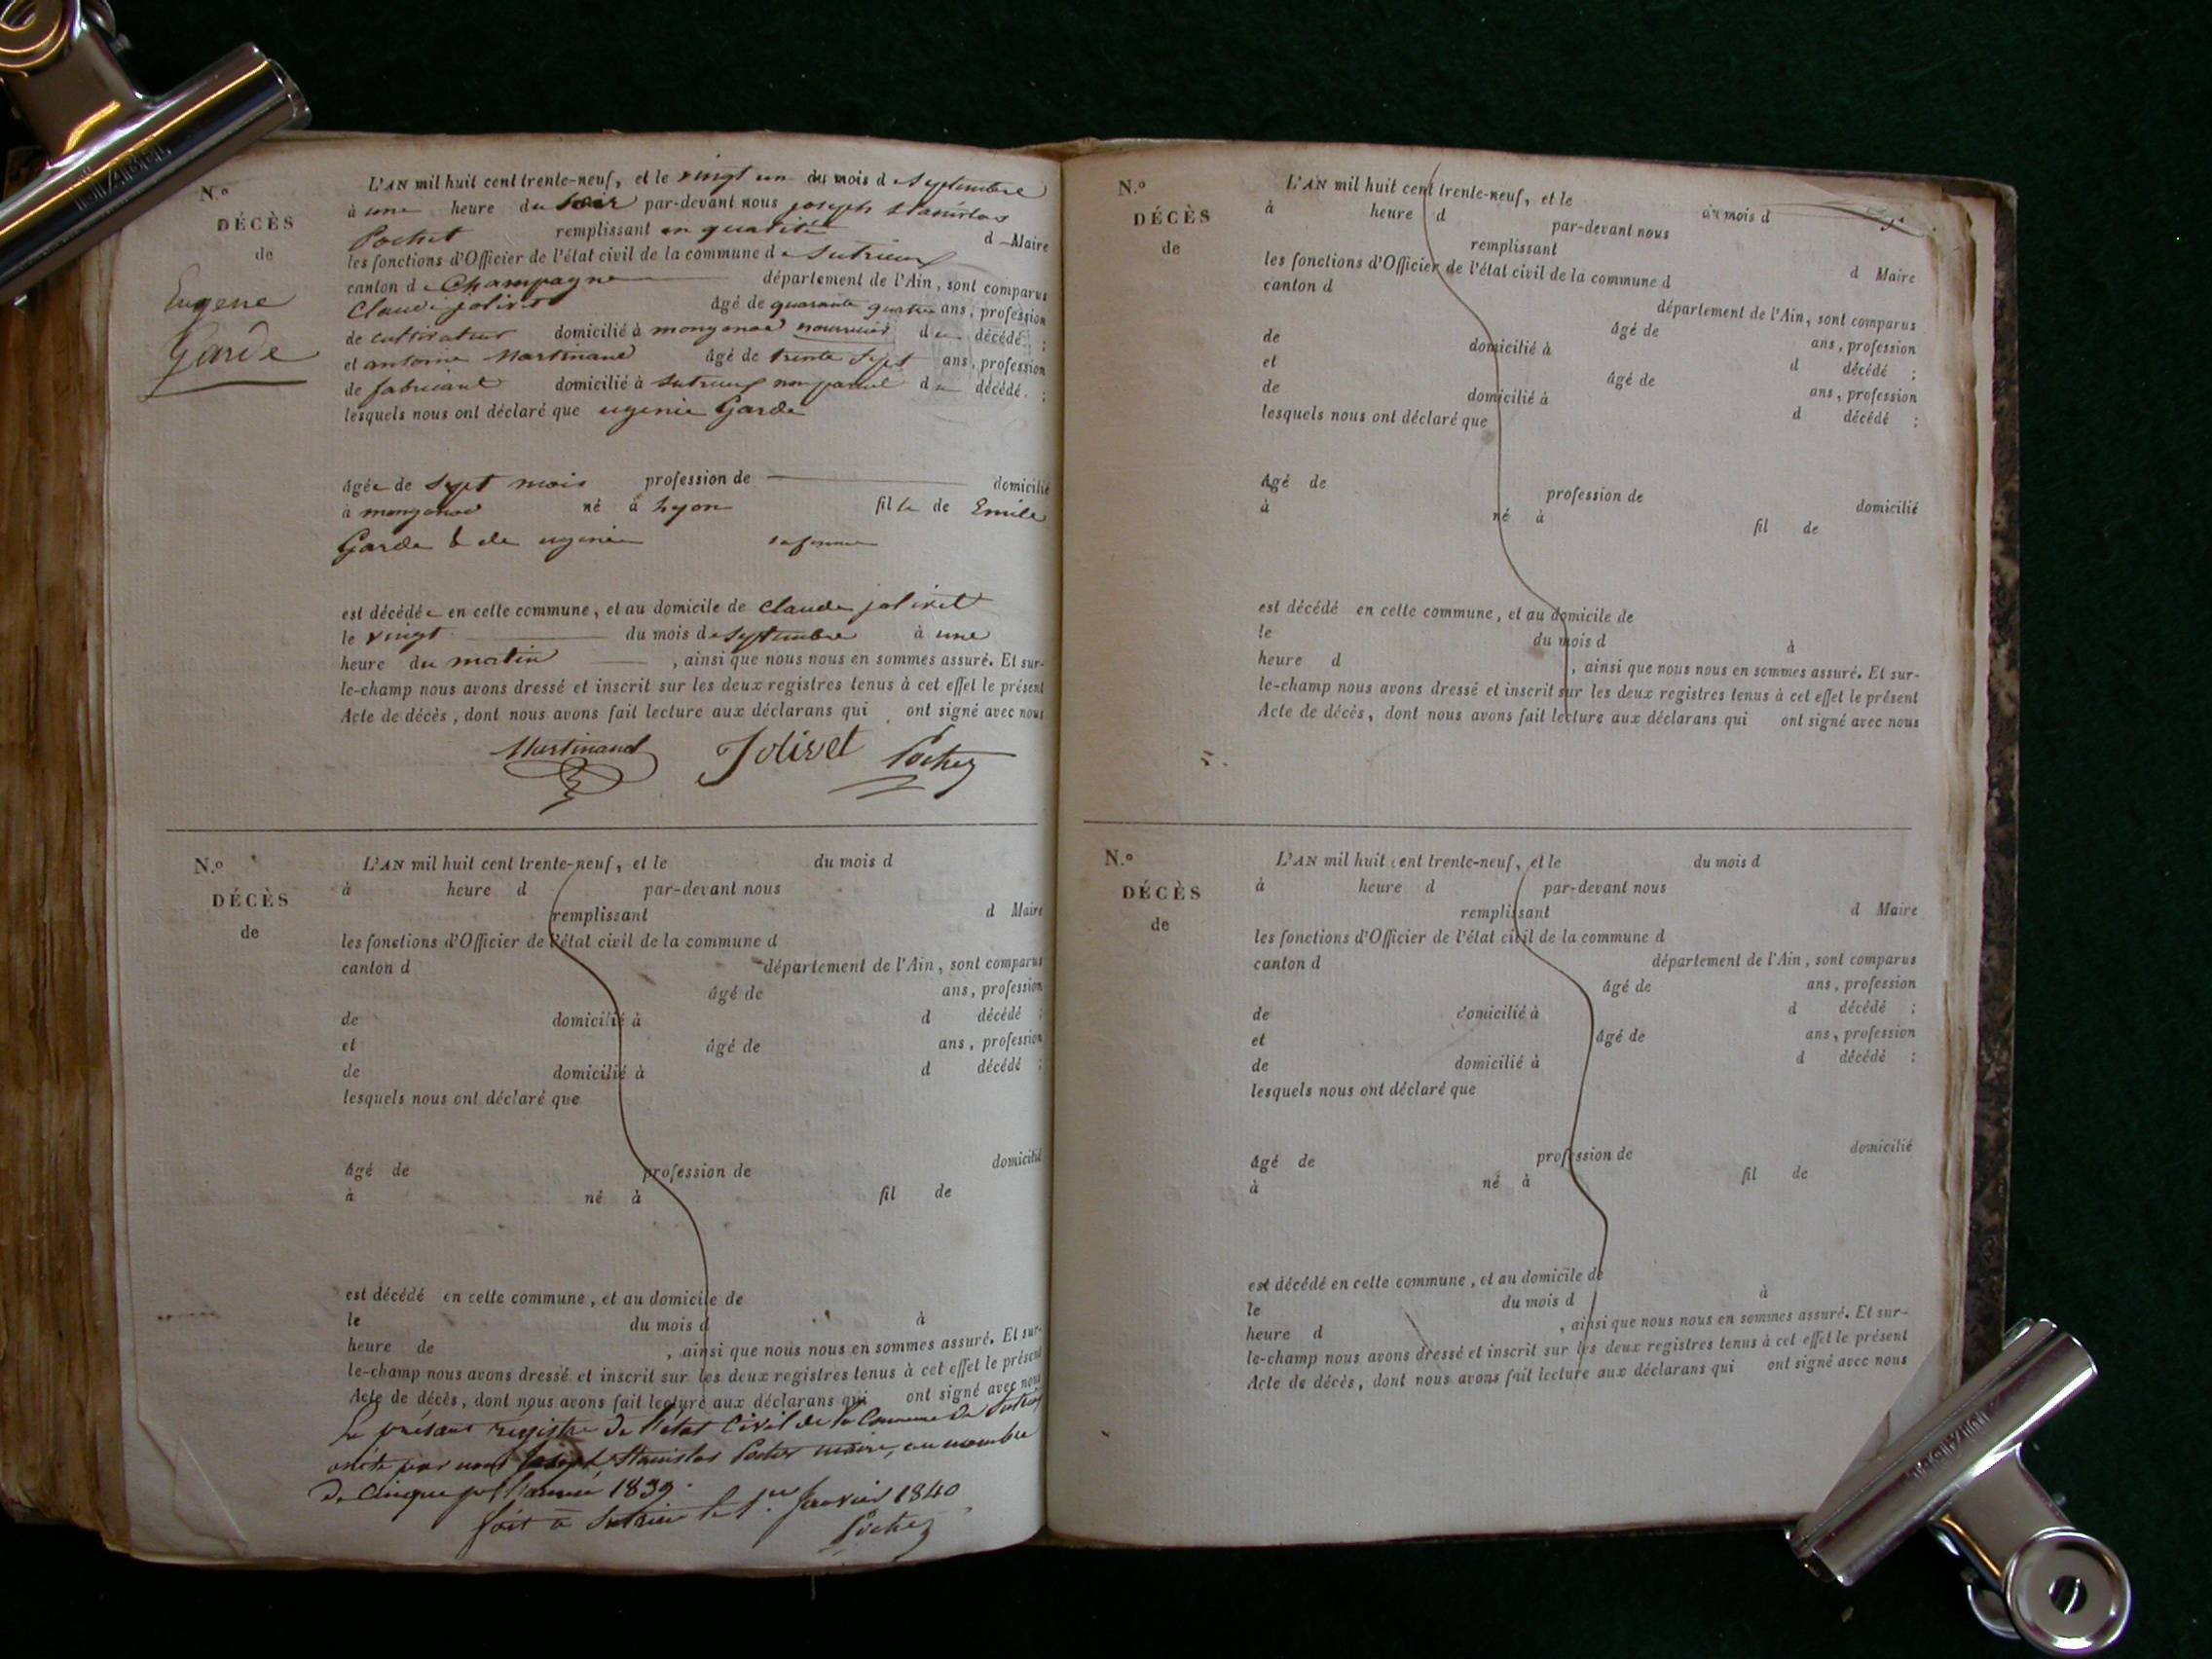 N.o
DÉCÈS
de
Eugene
Garde
L'AN mil huit cent trente-neuf, et le vingt un du mois d e Septembre
à une heure du soir par-devant nous joseph Stanislas
Pochet remplissant en qualité d e Maire
les fonctions d'Officier de l'état civil de la commune d e Sutrieu
canton d e Champagne département de l'Ain, sont comparus
Claude jolivet âgé de quarante quatre ans, profession
de cultivateur domicilié à mongonod nourricier d u décédé ;
et antoine Martinand âgé de trente Sept ans, profession
de fabricant domicilié à Sutrieux non parent d u décédé ;
lesquels nous ont déclaré que eugenie Garde
âgée de Sept mois profession de domicilié
à mongonod né à Lyon fille de Emile
Garde & de eugenie sa femme
est décédée en cette commune, et au domicile de Claude jolivet
le vingt du mois de Septembre à une
heure du matin , ainsi que nous nous en sommes assuré. Et sur-
le-champ nous avons dressé et inscrit sur les deux registres tenus à cet effet le présent
Acte de décès, dont nous avons fait lecture aux déclarans qui ont signé avec nous
Martinand Jolivet Pochet
N.o
DÉCÈS
de
L'AN mil huit cent trente-neuf, et le du mois d
à heure d par-devant nous
remplissant d Maire
les fonctions d'Officier de l'état civil de la commune d
canton d département de l'Ain, sont comparus
âgé de ans, profession
de domicilié à d décédé ;
et âgé de ans, profession
de domicilié à d décédé ;
lesquels nous ont déclaré que
âgé de profession de domicilié
à né à fil de
est décédé en cette commune, et au domicile de
le du mois d à
heure de , ainsi que nous nous en sommes assuré. Et sur-
le-champ nous avons dressé et inscrit sur les deux registres tenus à cet effet le présent
Acte de décès, dont nous avons fait lecture aux déclarans qui ont signé avec nous
Le présent registre de l'état Civil de la Commune de Sutrieu
par nous Joseph Stanislas Pochet maire, au nombre
de Cinque pr l'année 1839.
fait à Sutrieu le 1er Janvier 1840
Pochet
N.o
DÉCÈS
de
L'AN mil huit cent trente-neuf, et le du mois d
à heure d par-devant nous
remplissant d Maire
les fonctions d'Officier de l'état civil de la commune d
canton d département de l'Ain, sont comparus
âgé de ans, profession
de domicilié à d décédé ;
et âgé de ans, profession
de domicilié à d décédé ;
lesquels nous ont déclaré que
âgé de profession de domicilié
à né à fil de
est décédé en cette commune, et au domicile de
le du mois d à
heure d , ainsi que nous nous en sommes assuré. Et sur-
le-champ nous avons dressé et inscrit sur les deux registres tenus à cet effet le présent
Acte de décès, dont nous avons fait lecture aux déclarans qui ont signé avec nous
N.o
DÉCÈS
de
L'AN mil huit cent trente-neuf, et le du mois d
à heure d par-devant nous
remplissant d Maire
les fonctions d'Officier de l'état civil de la commune d
canton d département de l'Ain, sont comparus
âgé de ans, profession
de domicilié à d décédé ;
et âgé de ans, profession
de domicilié à d décédé ;
lesquels nous ont déclaré que
âgé de profession de domicilié
à né à fil de
est décédé en cette commune, et au domicile de
le du mois d à
heure d , ainsi que nous nous en sommes assuré. Et sur-
le-champ nous avons dressé et inscrit sur les deux registres tenus à cet effet le présent
Acte de décès, dont nous avons fait lecture aux déclarans qui ont signé avec nous